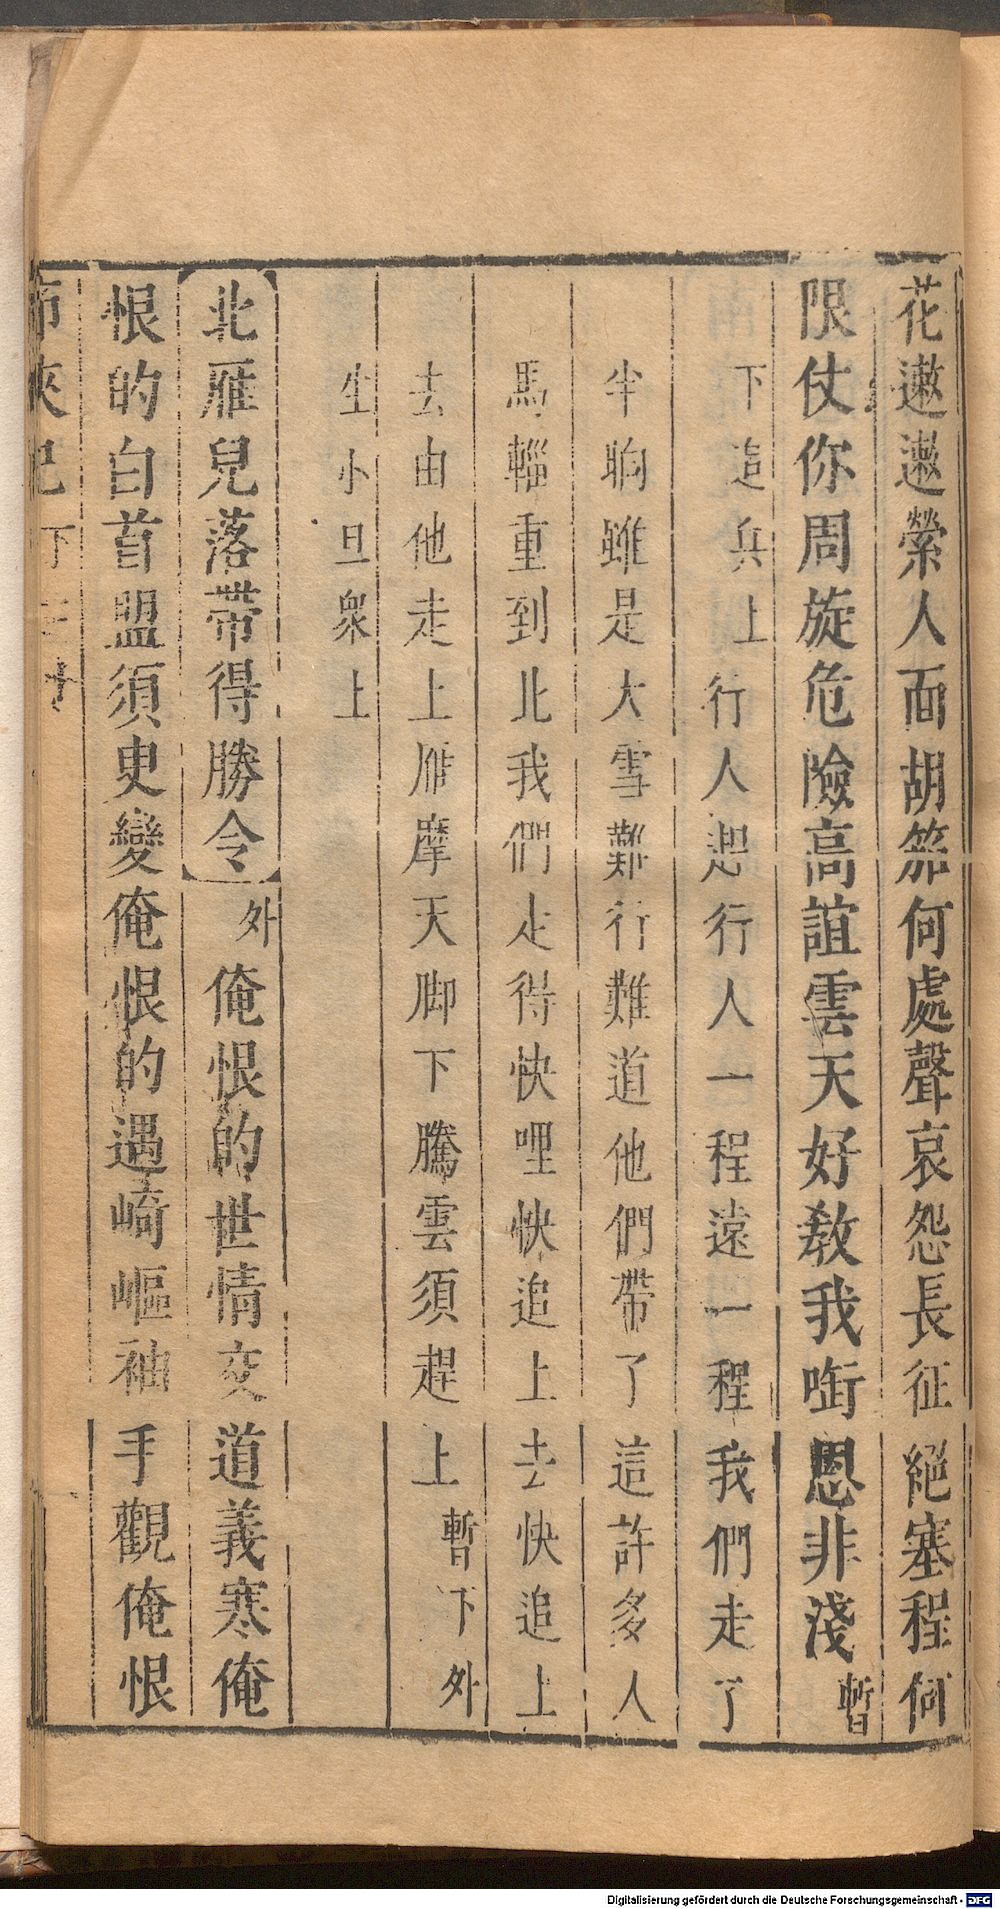 花遬遬縈人面胡笳何處聲哀怨長征絕塞程何
限仗你周旋危險高誼雲天好教我啣恩非淺暫
下逩兵上行人起行人一程遠一程我們走了
半晌雖是大雪難行難道他們帶了這許多人
馬輜重到北我們走得快哩快追上去快追上
去由他走上雁摩天脚下騰雲須趕上暫下外
生小旦衆上
北雁兒落帶得勝令外俺恨的世情交道義寒俺
恨的白首盟須臾變俺恨的遇崎嶇袖手觀俺恨
節俠記下
Digitalisierung gefördert durch die Deutsche Forschungsgemeinschaft - DFG